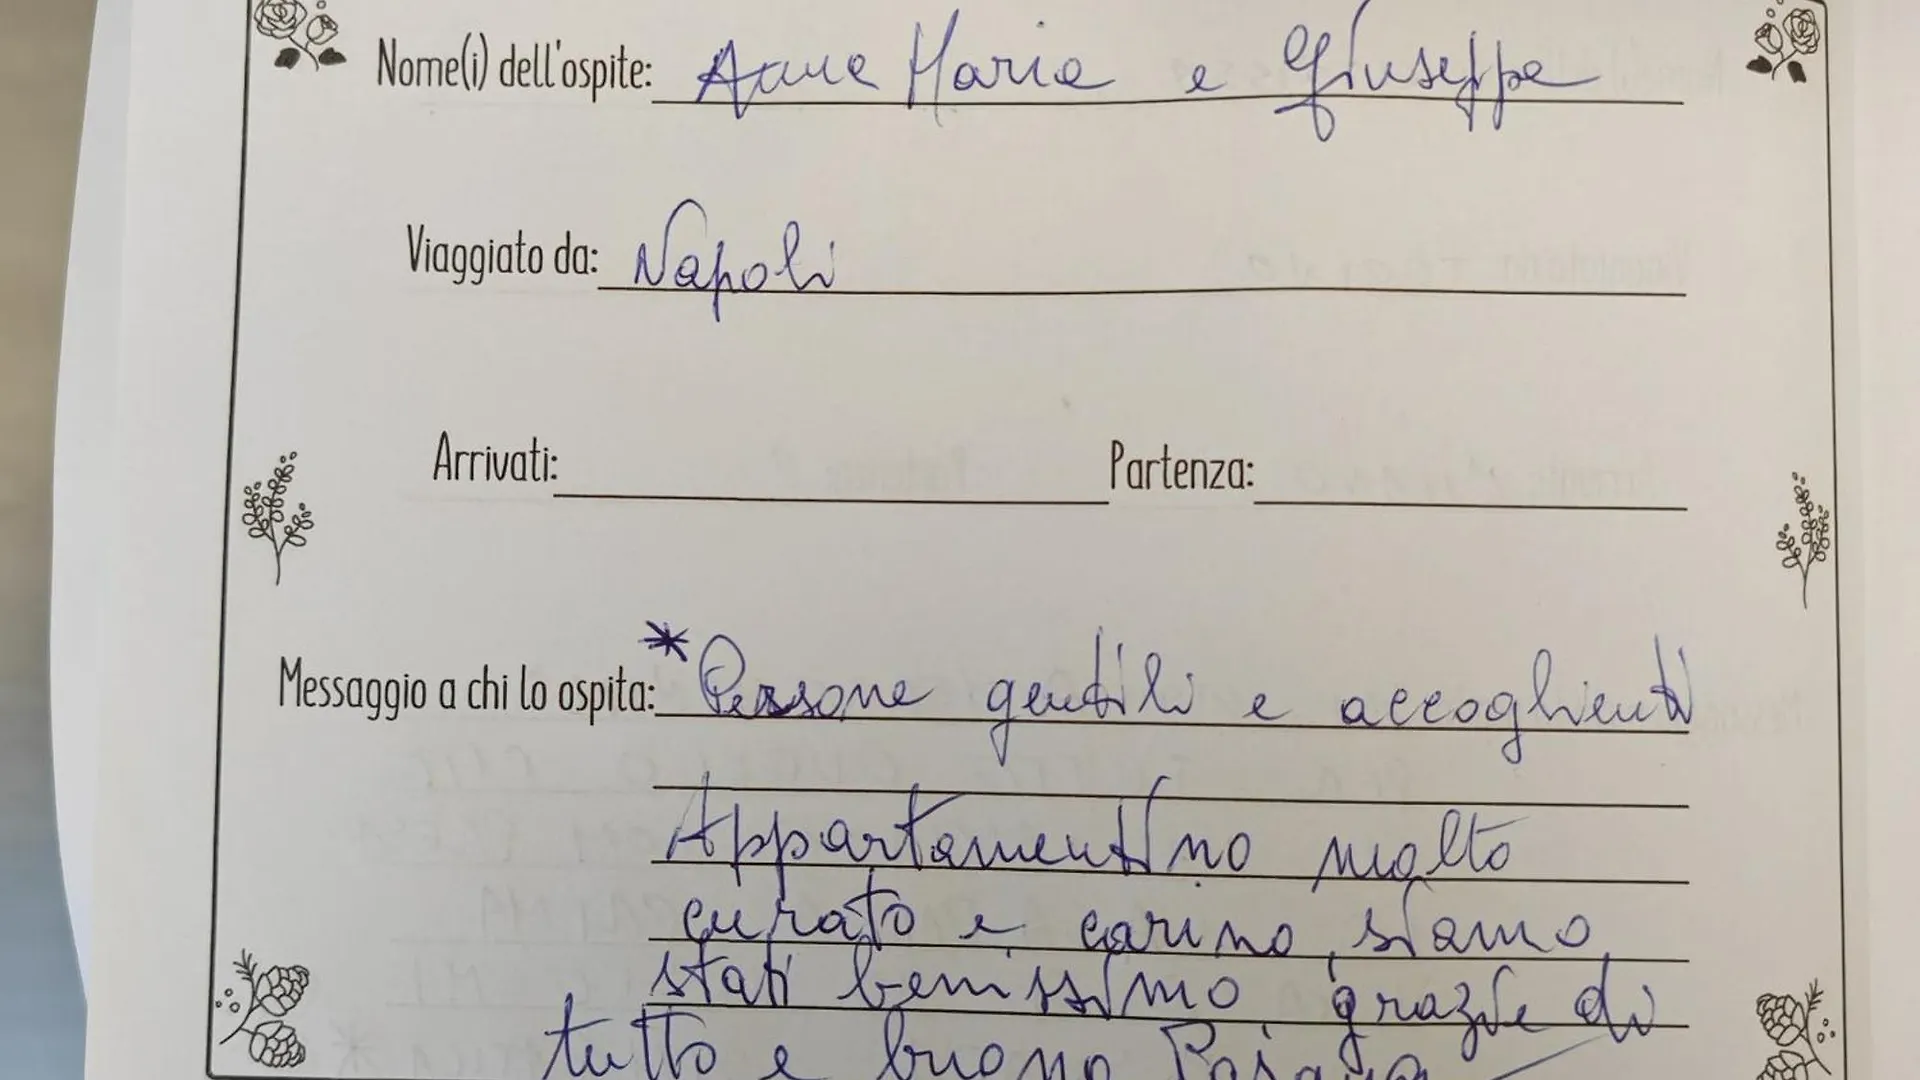 Nome(i) dell'ospite: Anna Maria e Giuseppe
Viaggiato da: Napoli
Arrivati: Partenza:
Messaggio a chi lo ospita: *Persone gentili e accoglienti
Appartamentino molto
curato e carino, siamo
stati benissimo grazie di
tutto e buono